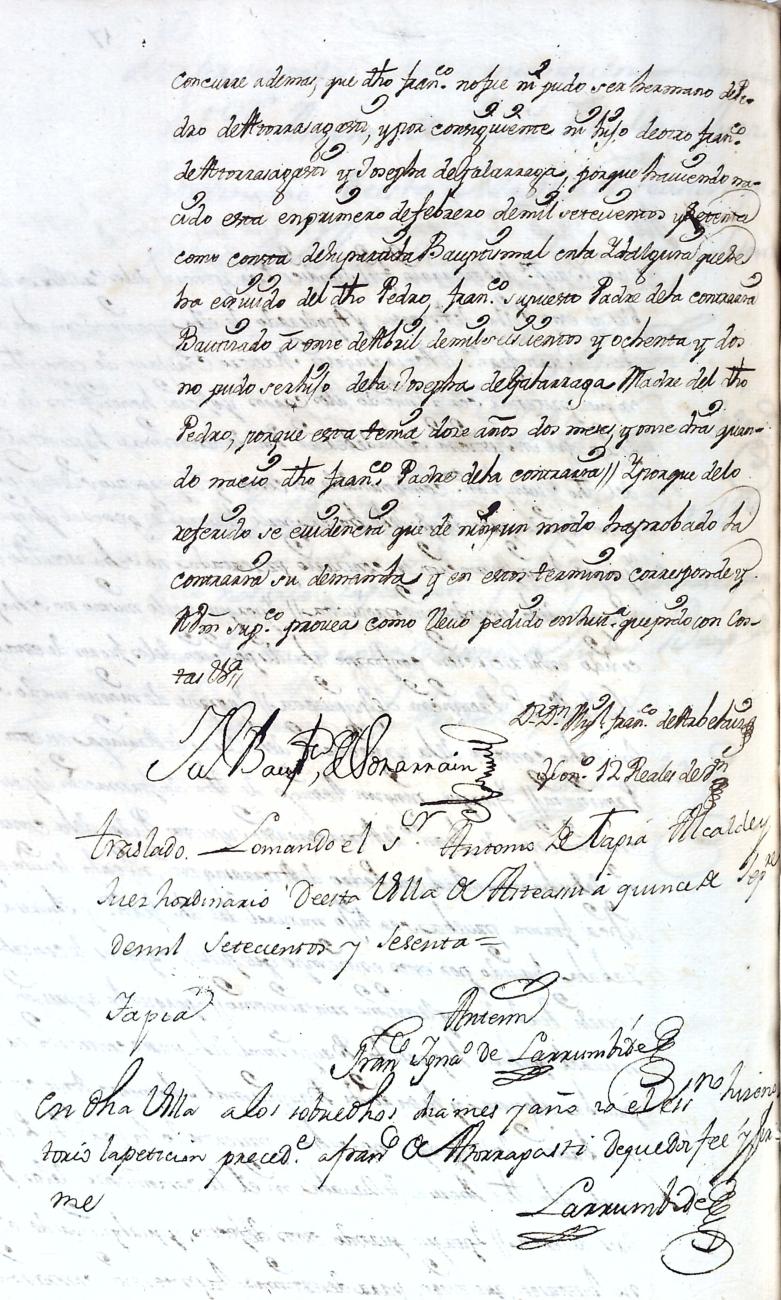 concurre ademas, que dho Fran.co no fue ni pudo ser hermano de Pe-
dro de Atorrasagasti, y por consiguiente ni hijo de otro Fran.co
de Atorrasagasti y Josepha de Galarraga, porque haviendo na-
cido esta en primero de febrero de mil setecientos y setenta
como consta de su partida Bautismal en la Ydalguia que se
ha seguido del dho Pedro, Fran.co supuesto Padre dela contraria
Bautizado á onze de Abril de mil seiscientos y ochenta y dos
no pudo ser hijo dela Josepha de Galarraga Madre del dho
Pedro, porque esta tenia doze años dos meses, y onze dias quan-
do nacio dho Fran.co Padre dela contraria// Y porque delo
referido se evidencia que de ningun modo ha probado la
contraria su demanda y en estos terminos corresponde y
A Vm sup.co provea como llevo pedido en just.a que pido con cos-
tas Vt.a//
D.r D.n Mig.l Fran.co de Arbelaiz
Ju Baup.ta de Sorarrain
hon.o 12 Reales de v.n
traslado. Lo mando el S.or Antonio de Tapia Alcalde y
Juez hordinario de esta Villa de Asteasu a quince de Sep.re
de mil Setecientos y sesenta =
Tapia
Antemi
Fran.co Ygna.o de Larrumbide
En dha Villa a los sobredhos dia mes y año yo el ess.no hize no
torio la peticion preced.e a Fran.co de Atorrasagasti de que doi fee y fir-
me
Larrumbide